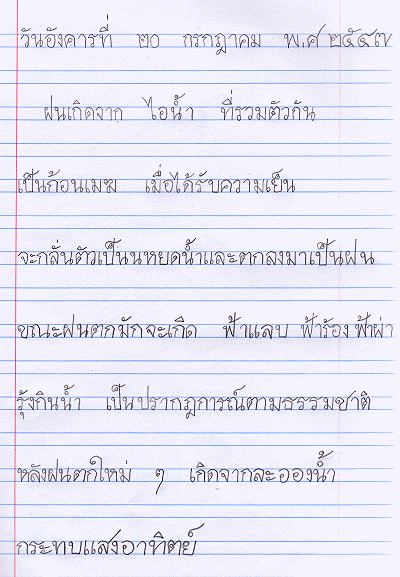 วันอังคารที่ ๒๐ กรกฎาคม พ.ศ ๒๕๔๗
ฝนเกิดจาก ไอน้ำ ที่รวมตัวกัน
เป็นก้อนเมฆ เมื่อได้รับความเย็น
จะกลั่นตัวเป็นนหยดน้ำและตกลงมาเป็นฝน
ขณะฝนตกมักจะเกิด ฟ้าแลบ ฟ้าร้อง ฟ้าผ่า
รุ้งกินน้ำ เป็นปรากฏการณ์ตามธรรมชาติ
หลังฝนตกใหม่ ๆ เกิดจากละอองน้ำ
กระทบแสงอาทิตย์